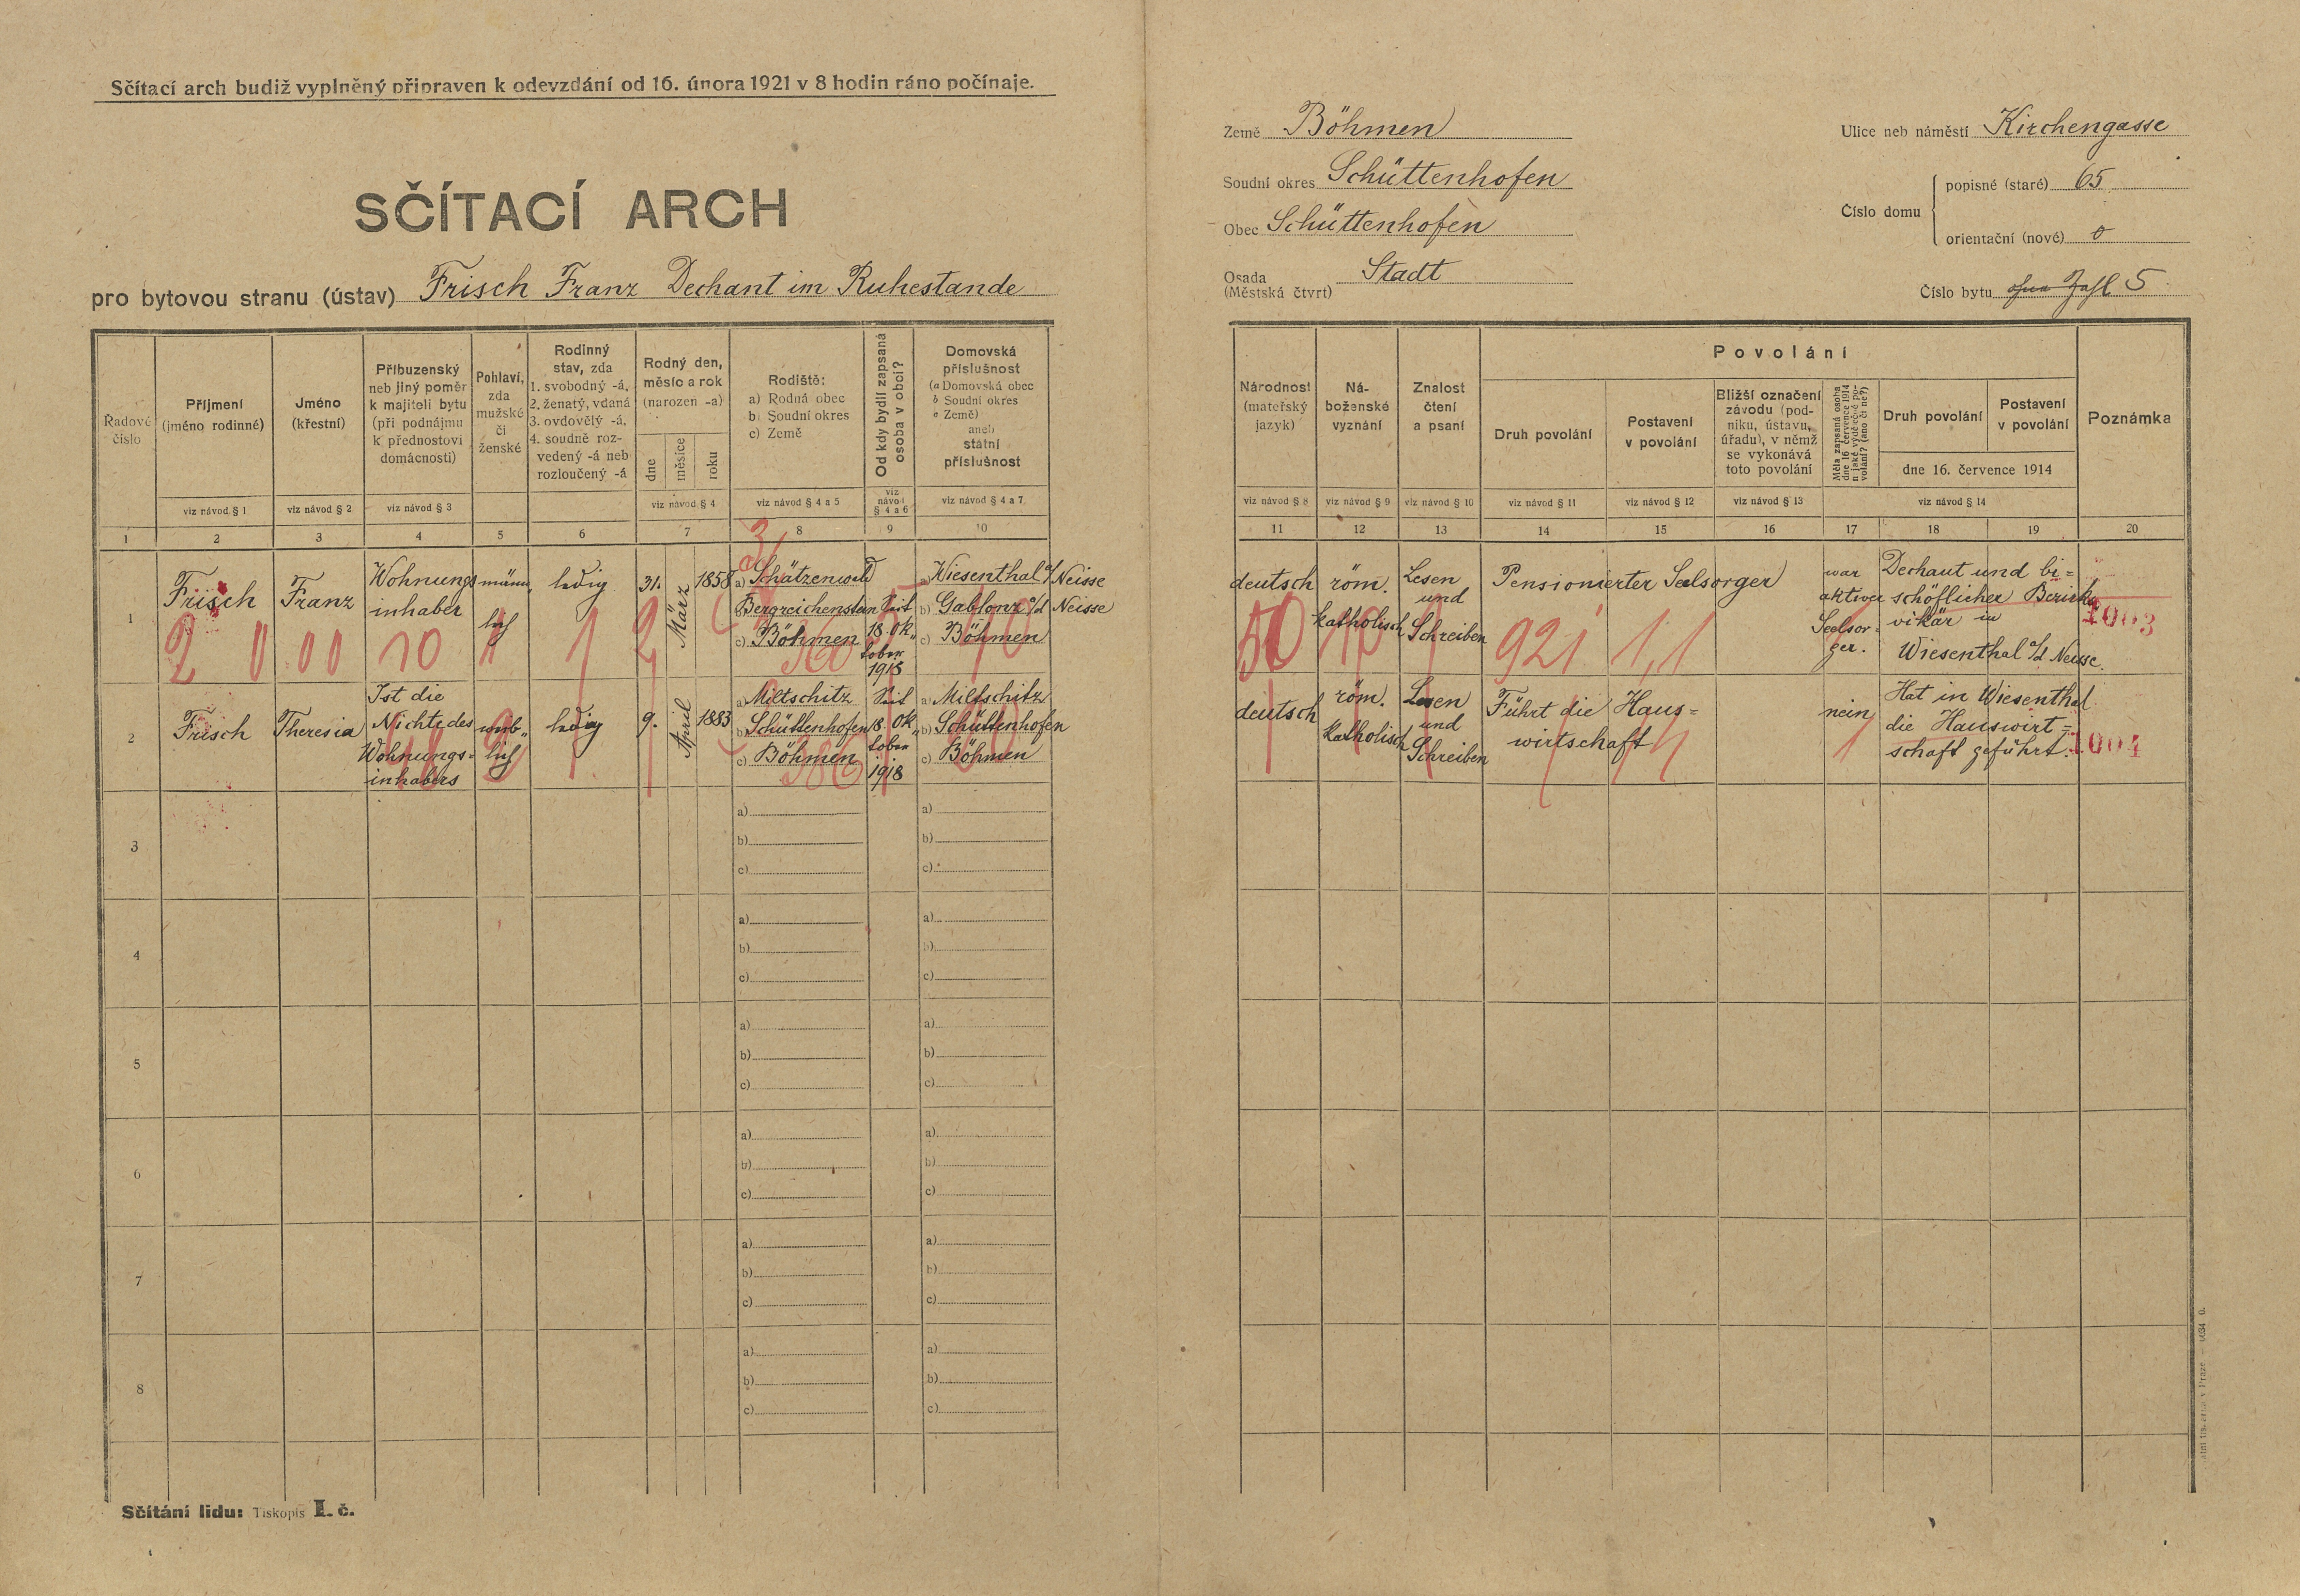 Sčítací arch budiž vyplněný připraven k odevzdání od 16. února 1921 v 8 hodin ráno počínaje.
SČÍTACÍ ARCH
pro bytovou stranu (ústav) Frisch Franz Dechant im Ruhestande
Země Böhmen
Soudní okres Schüttenhofen
Obec Schüttenhofen
Osada
(Městská čtvrt) Stadt
Ulice neb náměstí Kirchengasse
Číslo domu
popisné (staré) 65
orientační (nové) 0
Číslo bytu 5
Řadové
číslo
Příjmení
(jméno rodinné)
viz návod § 1
Jméno
(křestní)
viz návod § 2
Příbuzenský
neb jiný poměr
k majiteli bytu
(při podnájmu
k přednostovi
domácnosti)
viz návod § 3
Pohlaví,
zda
mužské
či
ženské
Rodinný
stav, zda
1. svobodný -á,
2. ženatý, vdaná
3. ovdovělý -á,
4. soudně roz-
vedený -á neb
rozloučený -á
Rodný den,
měsíc a rok
(narozen -a)
dne
měsíce
roku
viz návod § 4
Rodiště:
a) Rodná obec
b) Soudní okres
c) Země
viz návod § 4 a 5
Od kdy bydlí zapsaná
osoba v obci?
viz
návod
§ 4 a 6
Domovská
příslušnost
(a Domovská obec
b Soudní okres
c Země)
aneb
státní
příslušnost
viz návod § 4 a 7
Národnost
(mateřský
jazyk)
viz návod § 8
Ná-
boženské
vyznání
viz návod § 9
Znalost
čtení
a psaní
viz návod § 10
Povolání
Druh povolání
viz návod § 11
Postavení
v povolání
viz návod § 12
Bližší označení
závodu (pod-
niku, ústavu,
úřadu), v němž
se vykonává
toto povolání
viz návod § 13
Měla zapsaná osoba
dne 16 července 1914
nějaké výdělečné po-
volání? (ano či ne?)
Druh povolání
Postavení
v povolání
dne 16. července 1914
viz návod § 14
Poznámka
1 2 3 4 5 6 7 8 9 10 11 12 13 14 15 16 17 18 19 20
1
Frisch
Franz
Wohnungs
inhaber
männ„
lich
ledig
31.
März
1858
a) Schätzenwald
Bergreichenstein
c) Böhmen
Seit
18. Ok„
tober
1918
a) Wiesenthal a/d Neisse
b) Gablonz a/d Neisse
c) Böhmen
deutsch
röm.
katholisch
Lesen
und
Schreiben
Pensionierter Seelsorger
war
aktiver
Seelsor-
ger.
Dechant und bi=
schöflicher Bezirks
vikär in
Wiesenthal a/d Neisse.
1003
2 0 00 10 1 1 2 360
50 10 1 921 1,1
2
Frisch
Theresia
Ist die
Nichte des
Wohnungs=
inhabers
weib„
lich
ledig
9.
April
1883
a) Miltschitz
b) Schüttenhofen
c) Böhmen
Seit
18. Ok„
tober
1918
a) Miltschitz
b) Schüttenhofen
c) Böhmen
deutsch
röm.
katholisch
Lesen
und
Schreiben
Führt die Haus=
wirtschaft
nein
Hat in Wiesenthal
die Hauswirt=
schaft geführt.
1004
386
3
a)
b)
c)
a)
b)
c)
4
a)
b)
c)
a)
b)
c)
5
a)
b)
c)
a)
b)
c)
6
a)
b)
c)
a)
b)
c)
7
a)
b)
c)
a)
b)
c)
8
a)
b)
c)
a)
b)
c)
Sčítání lidu: Tiskopis I. č.